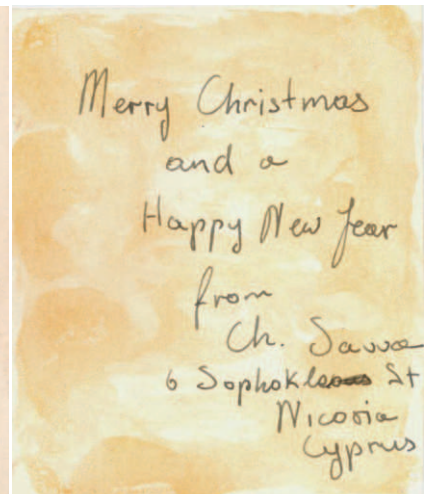 Merry Christmas
and a
Happy New Year
from
Ch. Savva
6 Sophokleous St
Nicosia
Cyprus